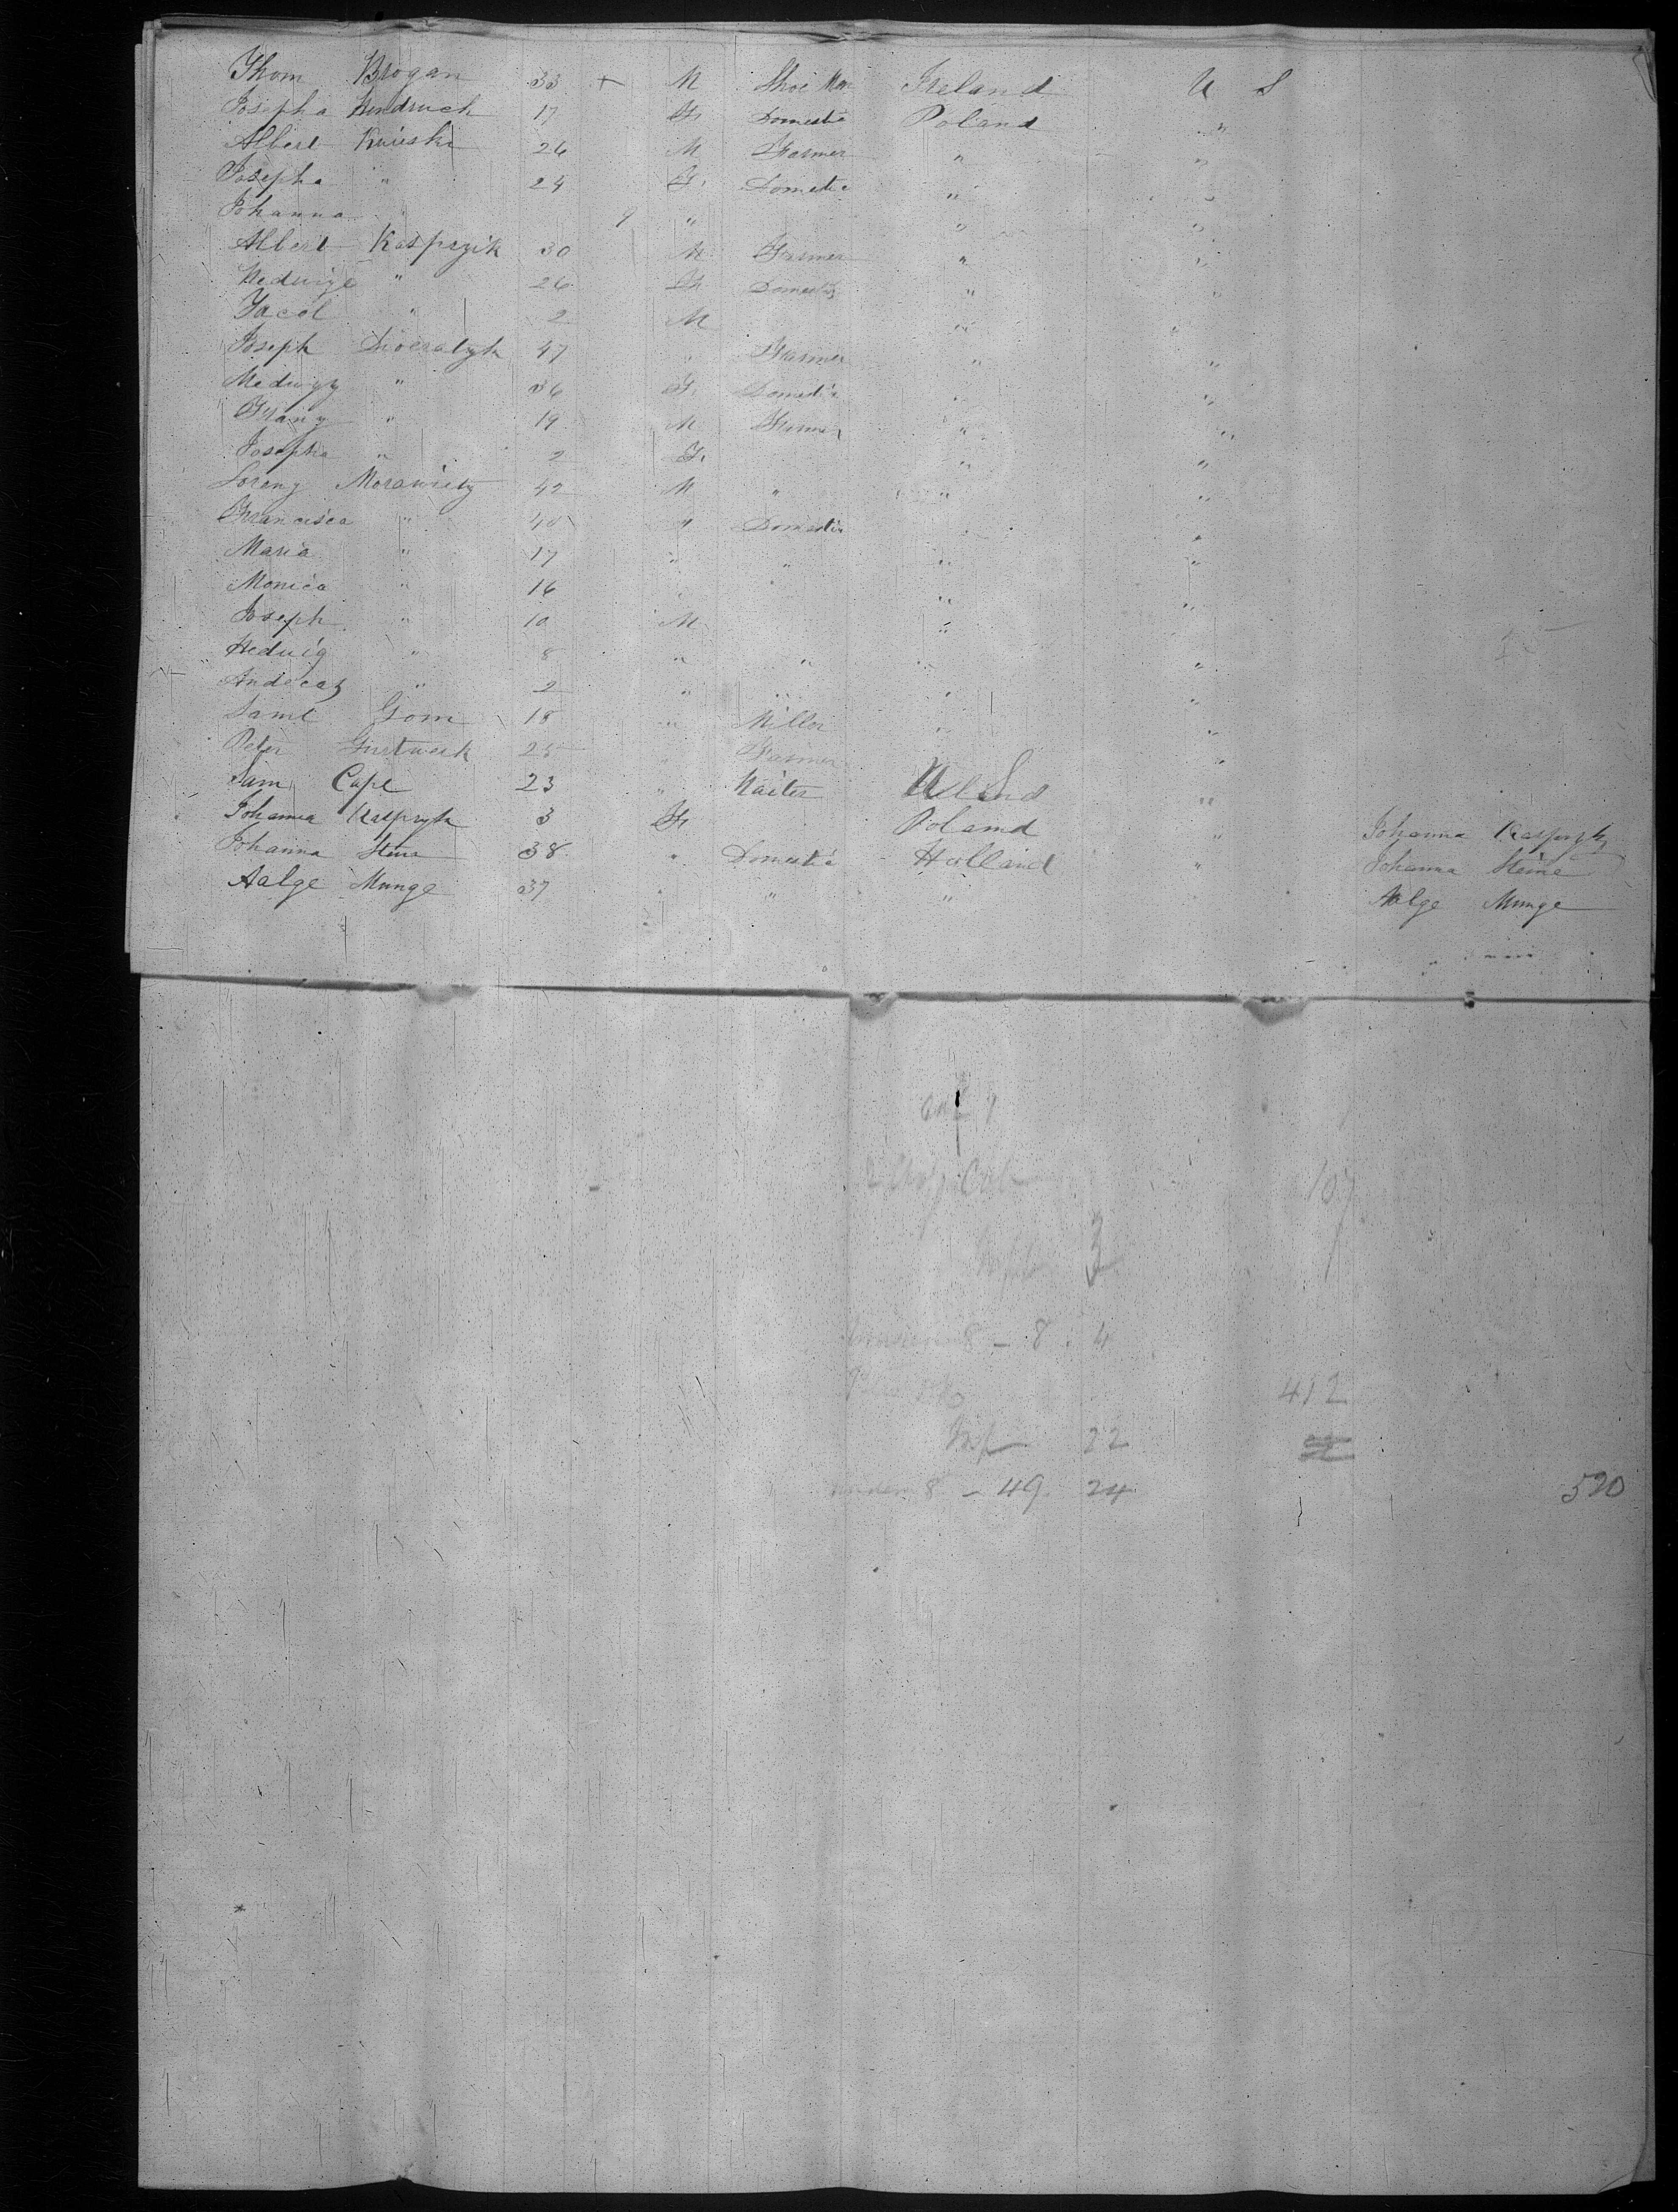 Thom Brogan 33 + M Shoe Mar Ireland U S
Josepha Hendruch 17 F. Domestic Poland "
Albert Kruiski 26 M Farmer " "
Josepha " 24 F. Domestic " "
Johanna " 9 " " "
Albert Kasprzik 30 M Farmer " "
Hedwige " 26 F Domestic " "
Jacob " 2 M " "
Joseph 47 " Farmer " "
Hedwig " 36 F. Domestic " "
Franz " 19 M Farmer " "
Josepha " 2 F. " "
Lorenz Morawietz 42 M " " "
Francisca " 40 " Domestic " "
Maria " 17 " " " "
Monica " 16 " " " "
Joseph " 10 M " "
Hedwig " 8 " " " "
" 2 " " " "
Saml Gom 18 " Miller " "
Peter 25 " Farmer "
Sam Cape 23 " Waiter "
Johanna Kasprzyk 3 F. Poland " Johanna Kasprzyk
Johanna Steine 38 " Domestic Holland " Johanna Steine
Aalge Munge 37 " " " Aalge Munge
107
3
8 - 8 . 4
412
Inf 22
under 8 - 49. 24
520